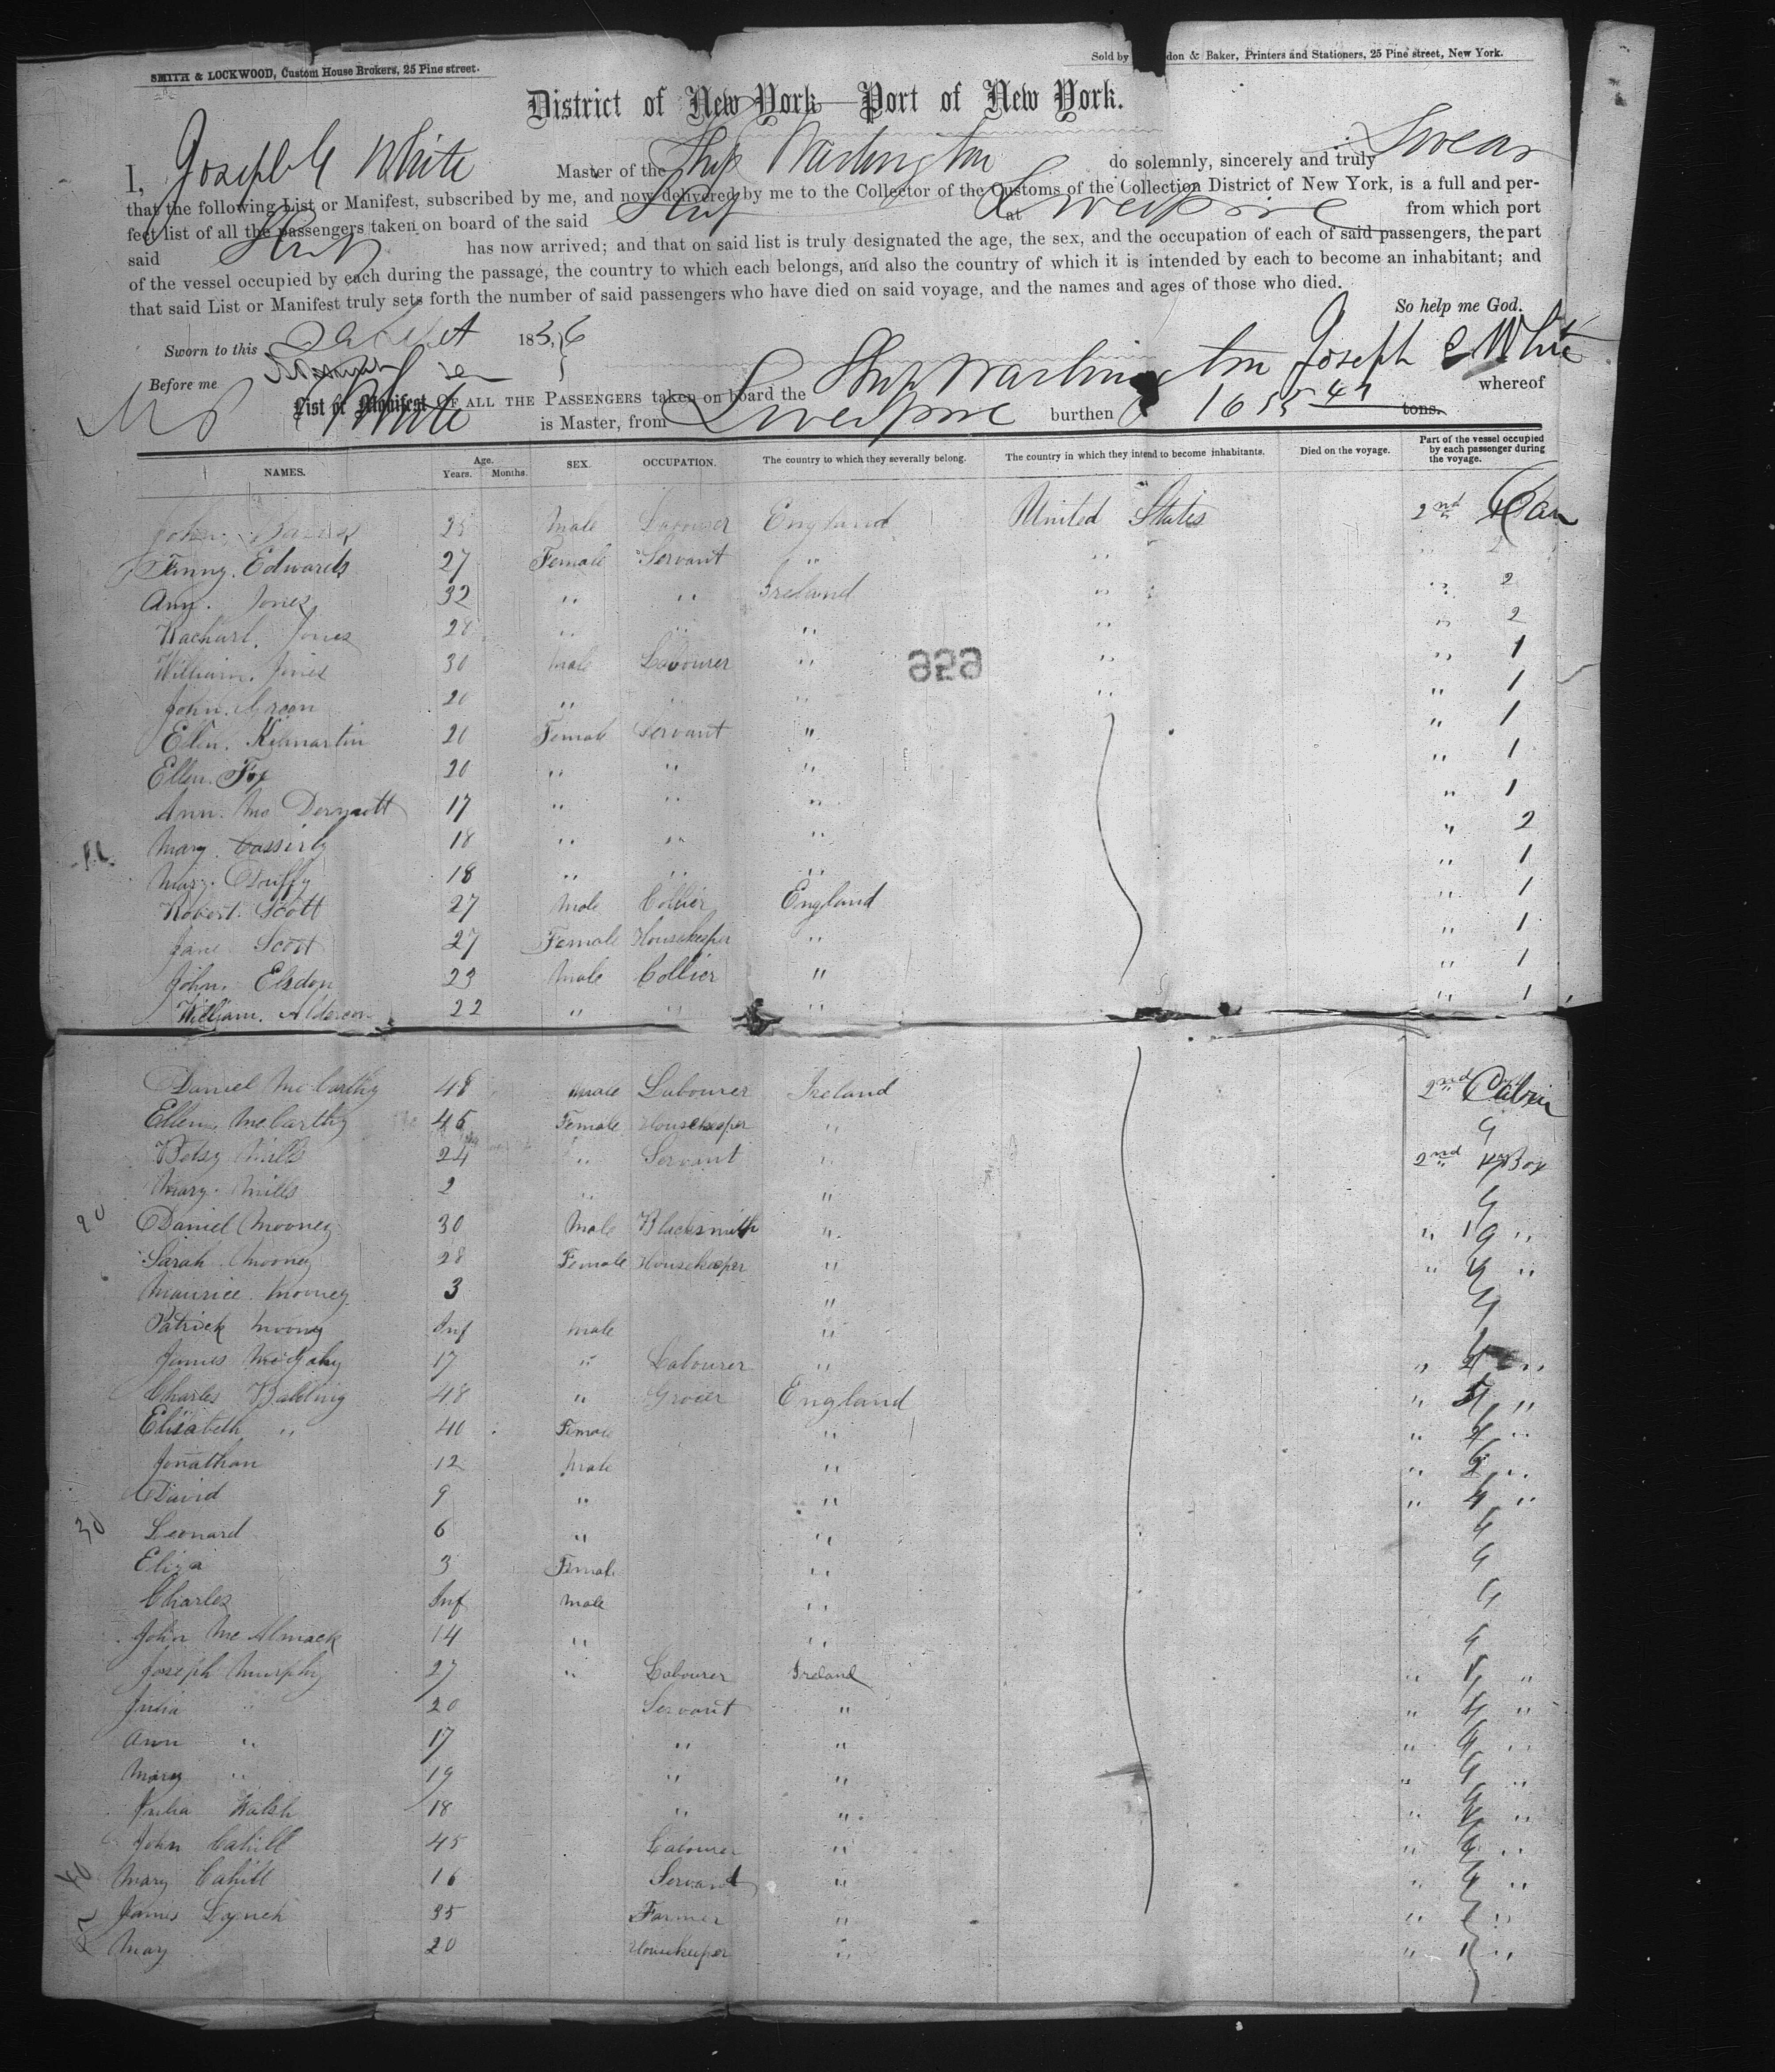 SMITH & LOCKWOOD, Custom House Brokers, 25 Pine street.
Sold by don & Baker, Printers and Stationers, 25 Pine street, New York.
District of New York—Port of New York.
I, Joseph White Master of the Ship Washington do solemnly, sincerely and truly Swear
that the following List or Manifest, subscribed by me, and now delivered by me to the Collector of the Customs of the Collection District of New York, is a full and per-
fect list of all the passengers taken on board of the said Ship at Liverpool from which port
said Ship has now arrived; and that on said list is truly designated the age, the sex, and the occupation of each of said passengers, the part
of the vessel occupied by each during the passage, the country to which each belongs, and also the country of which it is intended by each to become an inhabitant; and
that said List or Manifest truly sets forth the number of said passengers who have died on said voyage, and the names and ages of those who died.
So help me God.
Sworn to this 1856
Joseph White
Before me
List or Manifest OF ALL THE PASSENGERS taken on board the Ship Washington whereof
White is Master, from Liverpool burthen 1655 tons.
NAMES. Age. Years. Months. SEX. OCCUPATION. The country to which they severally belong. The country in which they intend to become inhabitants. Died on the voyage. Part of the vessel occupied by each passenger during the voyage.
John 25 Male Labourer England United States 2nd
Fanny Edwards 27 Female Servant " " " 2
Ann Jones 32 " " Ireland " " 2
Rachael Jones 28 " " " " " 2
William Jones 30 Male Labourer " " " 1
John Green 20 " " " " " 1
Ellen Kilmartin 20 Female Servant " " 1
Ellen Fox 20 " " " " 1
Ann Mc Dermott 17 " " " " 1
Mary Casserly 18 " " " " 2
Mary Duffy 18 " " " " 1
Robert Scott 27 Male Collier England " 1
Jane Scott 27 Female Housekeeper " " 1
John Elsdon 23 Male Collier " " 1
William Alderson 22 " " " " 1
Daniel McCarthy 48 Male Labourer Ireland 2nd Cabin
Ellen McCarthy 45 Female Housekeeper "
Betsy Mills 24 " Servant " 2nd
Mary Mills 2 " "
20 Daniel Mooney 30 Male Blacksmith " " "
Sarah Mooney 28 Female Housekeeper " " "
Maurice Mooney 3 "
Patrick Mooney Inf Male "
James 17 " Labourer " " "
Charles Balding 48 " Grocer England " "
Elisabeth " 40 Female " " "
Jonathan 12 Male " " "
David 9 " " " "
30 Leonard 6 " "
Eliza 3 Female "
Charles Inf Male "
John McAlmack 14 " "
Joseph Murphy 27 " Labourer Ireland " "
Julia " 20 Servant " " "
Ann " 17 " " " "
Mary " 19 " " " "
Julia Walsh 18 " " " "
John Cahill 45 Labourer " " "
40 Mary Cahill 16 Servant " " "
James Lynch 35 Farmer " " "
Mary 20 Housekeeper " " "